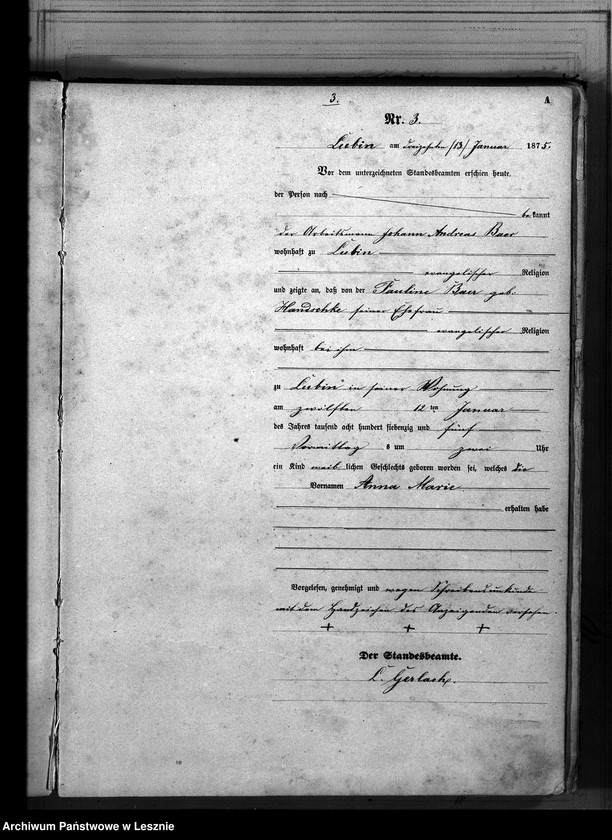 3.
A
Nr. 3.
Lubin am dreizehnten /13/ Januar 1875.
Vor dem unterzeichneten Standesbeamten erschien heute,
der Person nach
bekannt
der Arbeitsmann Johann Andreas Baer
wohnhaft zu Lubin
evangelischer Religion
und zeigte an, daß von der Pauline Baer geb:
Handschke seiner Ehefrau
evangelischer Religion
wohnhaft bei ihm
zu Lubin in seiner Wohnung
am zwölften 12ten Januar
des Jahres tausend acht hundert siebenzig und fünf
Vormittags um zwei Uhr
ein Kind weiblichen Geschlechts geboren worden sei, welches die
Vornamen Anna Marie
erhalten habe
Vorgelesen, genehmigt und wegen Schreibensunkunde
mit dem Handzeichen des Anzeigenden versehen.
+ + +
Der Standesbeamte.
Gerlach.
Archiwum Państwowe w Lesznie